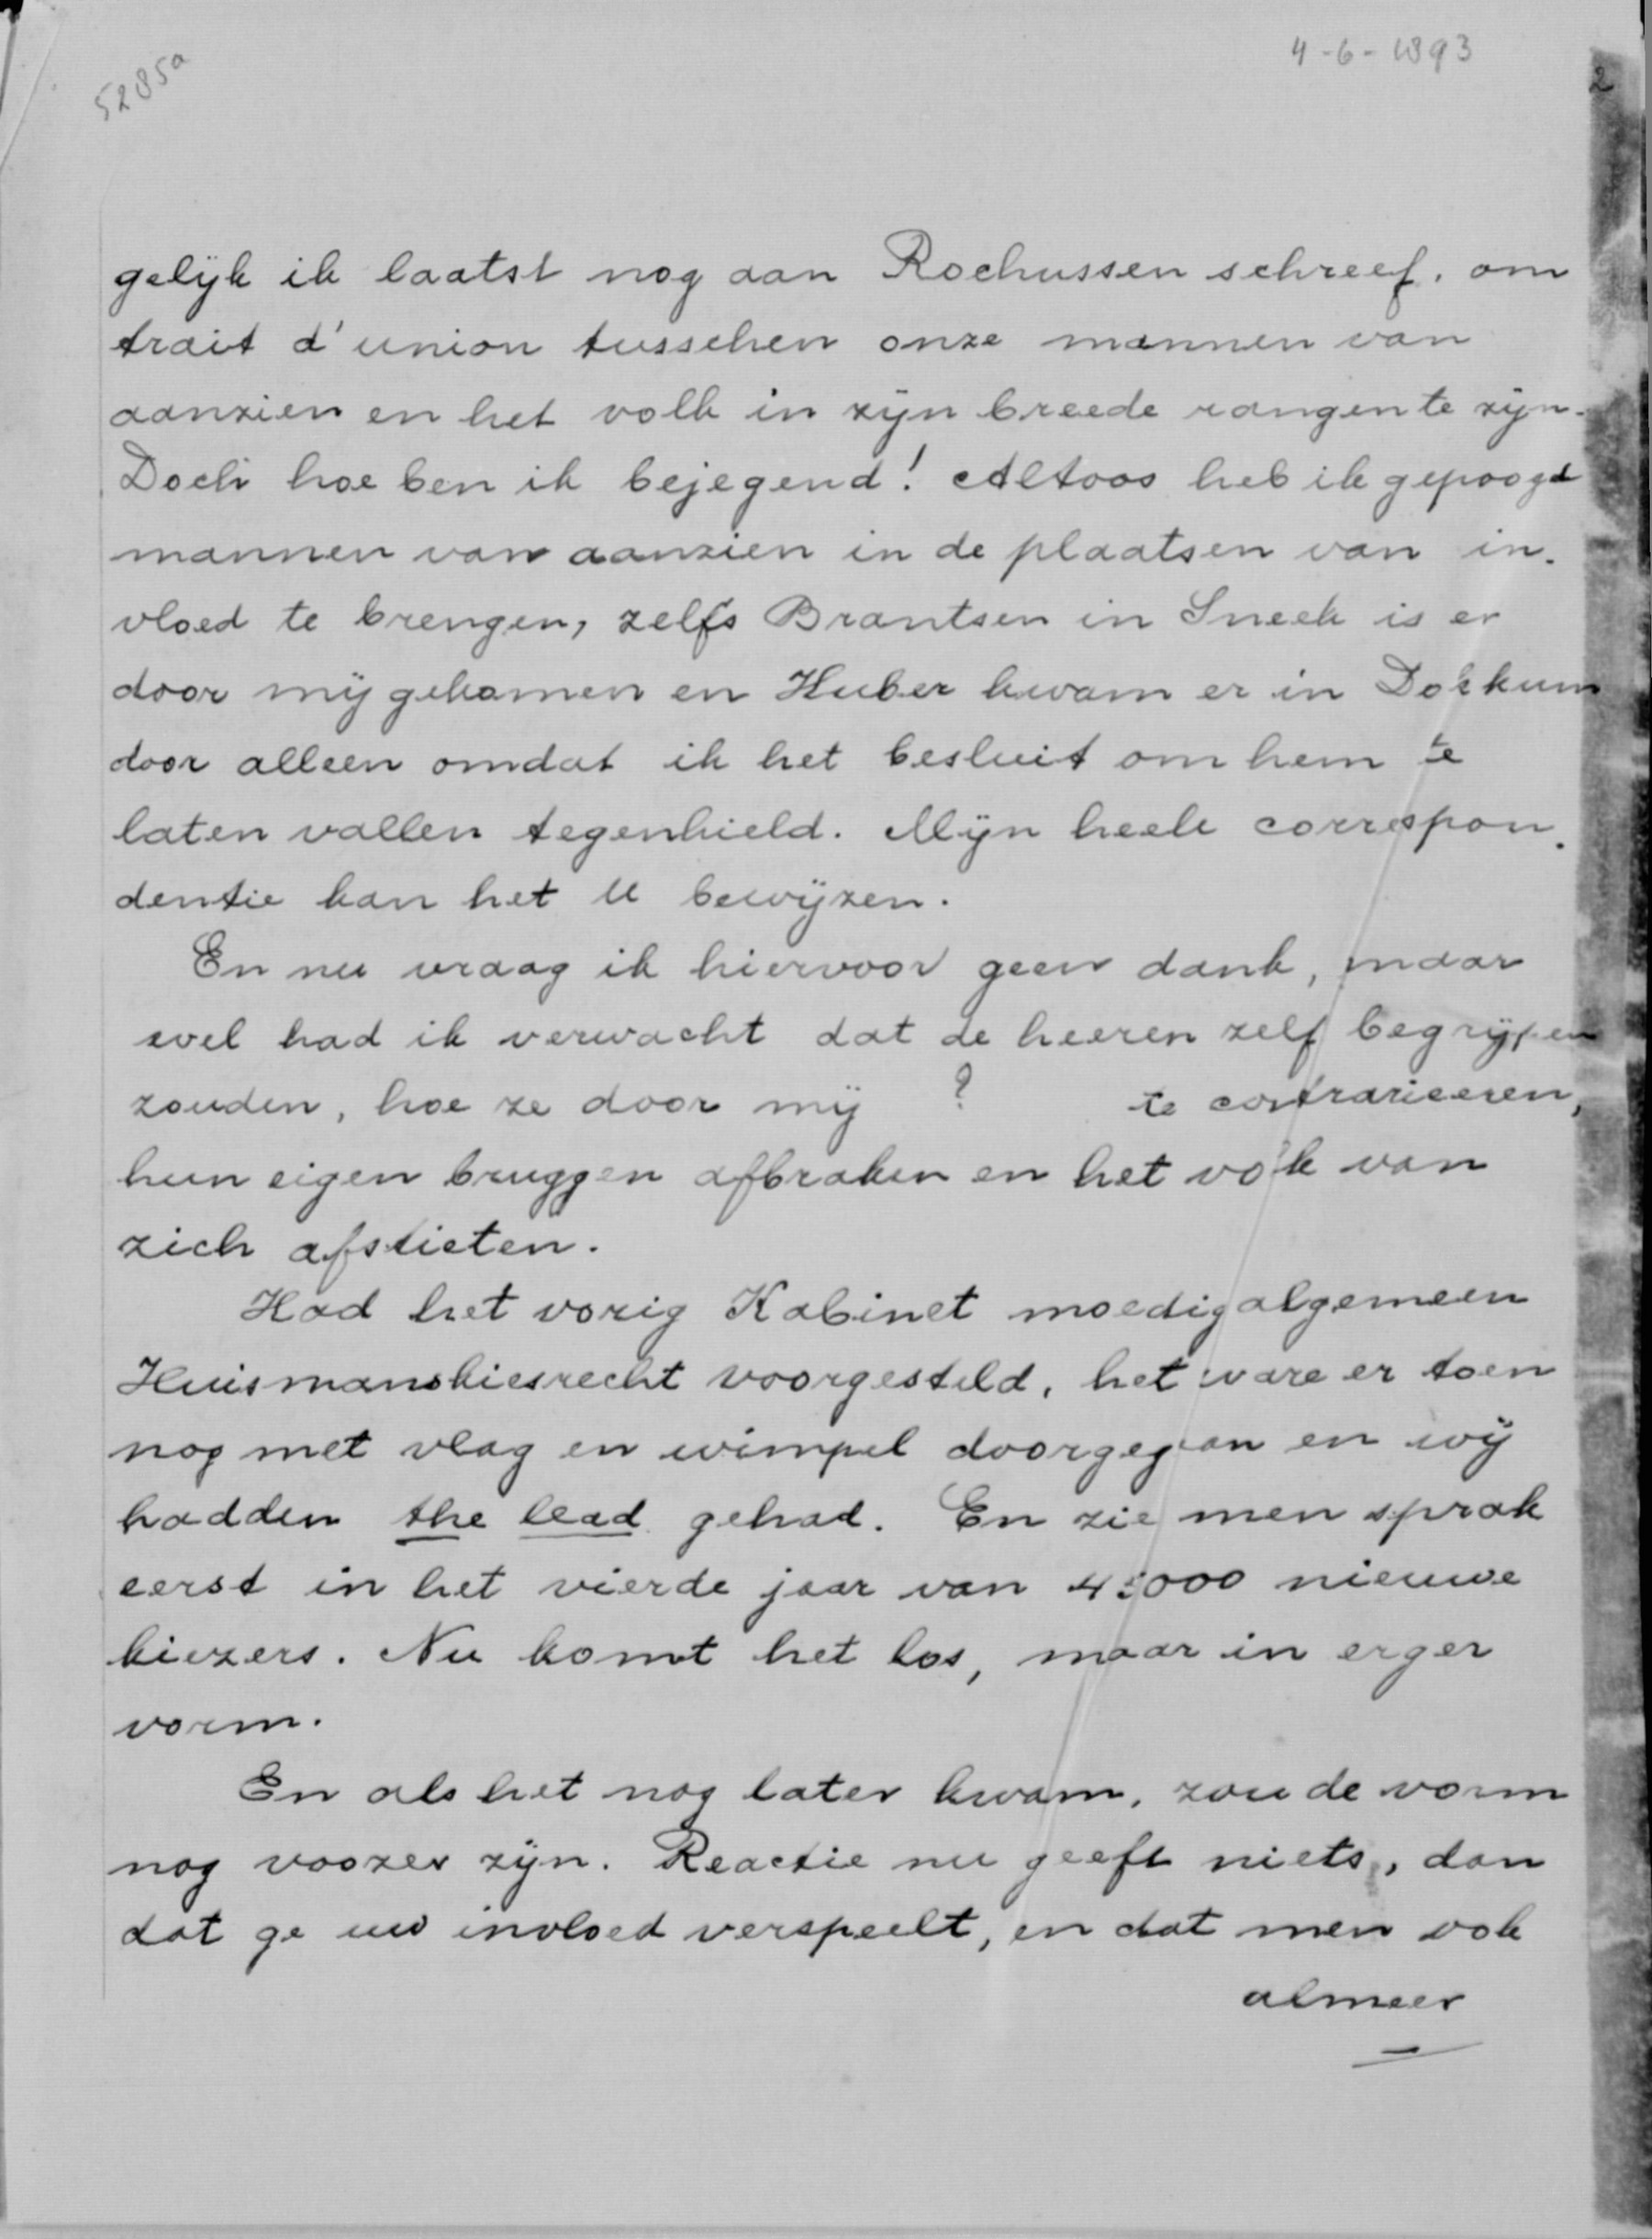 4-6-1893
5285a
2
gelijk ik laatst nog aan Rochussen schreef, om
trait d'union tusschen onze mannen van
aanzien en het volk in zijn breede rangen te zijn.
Doch hoe ben ik bejegend! Altoos heb ik gepoogd
mannen van aanzien in de plaatsen van in-
vloed te brengen, zelfs Brantsen in Sneek is er
door mij gekomen en Huber kwam er in Dokkum
door alleen omdat ik het besluit om hem te
laten vallen tegenhield. Mijn heele correspon-
dentie kan het U bewijzen.
En nu vraag ik hiervoor geen dank, maar
wel had ik verwacht dat de heeren zelf begrijpen
zouden, hoe ze door mij ? te contrarieeren,
hun eigen bruggen afbraken en het volk van
zich afstieten.
Had het vorig Kabinet moedig algemeen
Huismanskiesrecht voorgesteld, het ware er toen
nog met vlag en wimpel doorgegaan en wij
hadden the lead gehad. En zie men sprak
eerst in het vierde jaar van 45000 nieuwe
kiezers. Nu komt het los, maar in erger
vorm.
En als het nog later kwam, zou de vorm
nog voozer zijn. Reactie nu geeft niets, dan
dat ge uw invloed verspeelt, en dat men ook
almeer